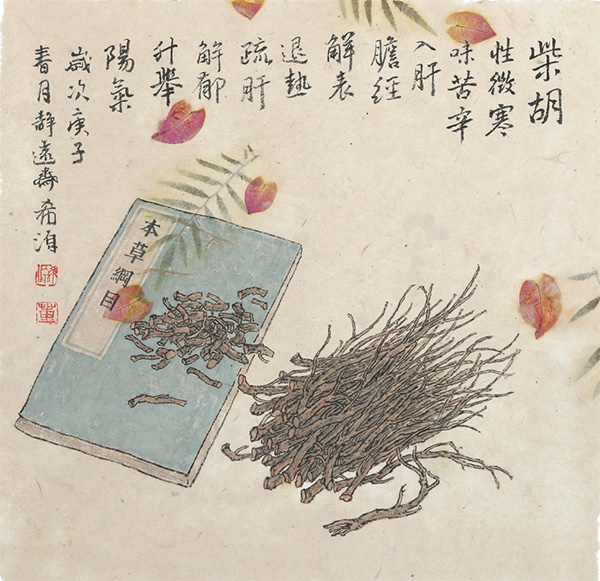 柴胡
性微寒
味苦辛
入肝
膽經
解表
退熱
疏肝
解郁
升舉
陽氣
歲次庚子
春月靜遠齋希
本草綱目